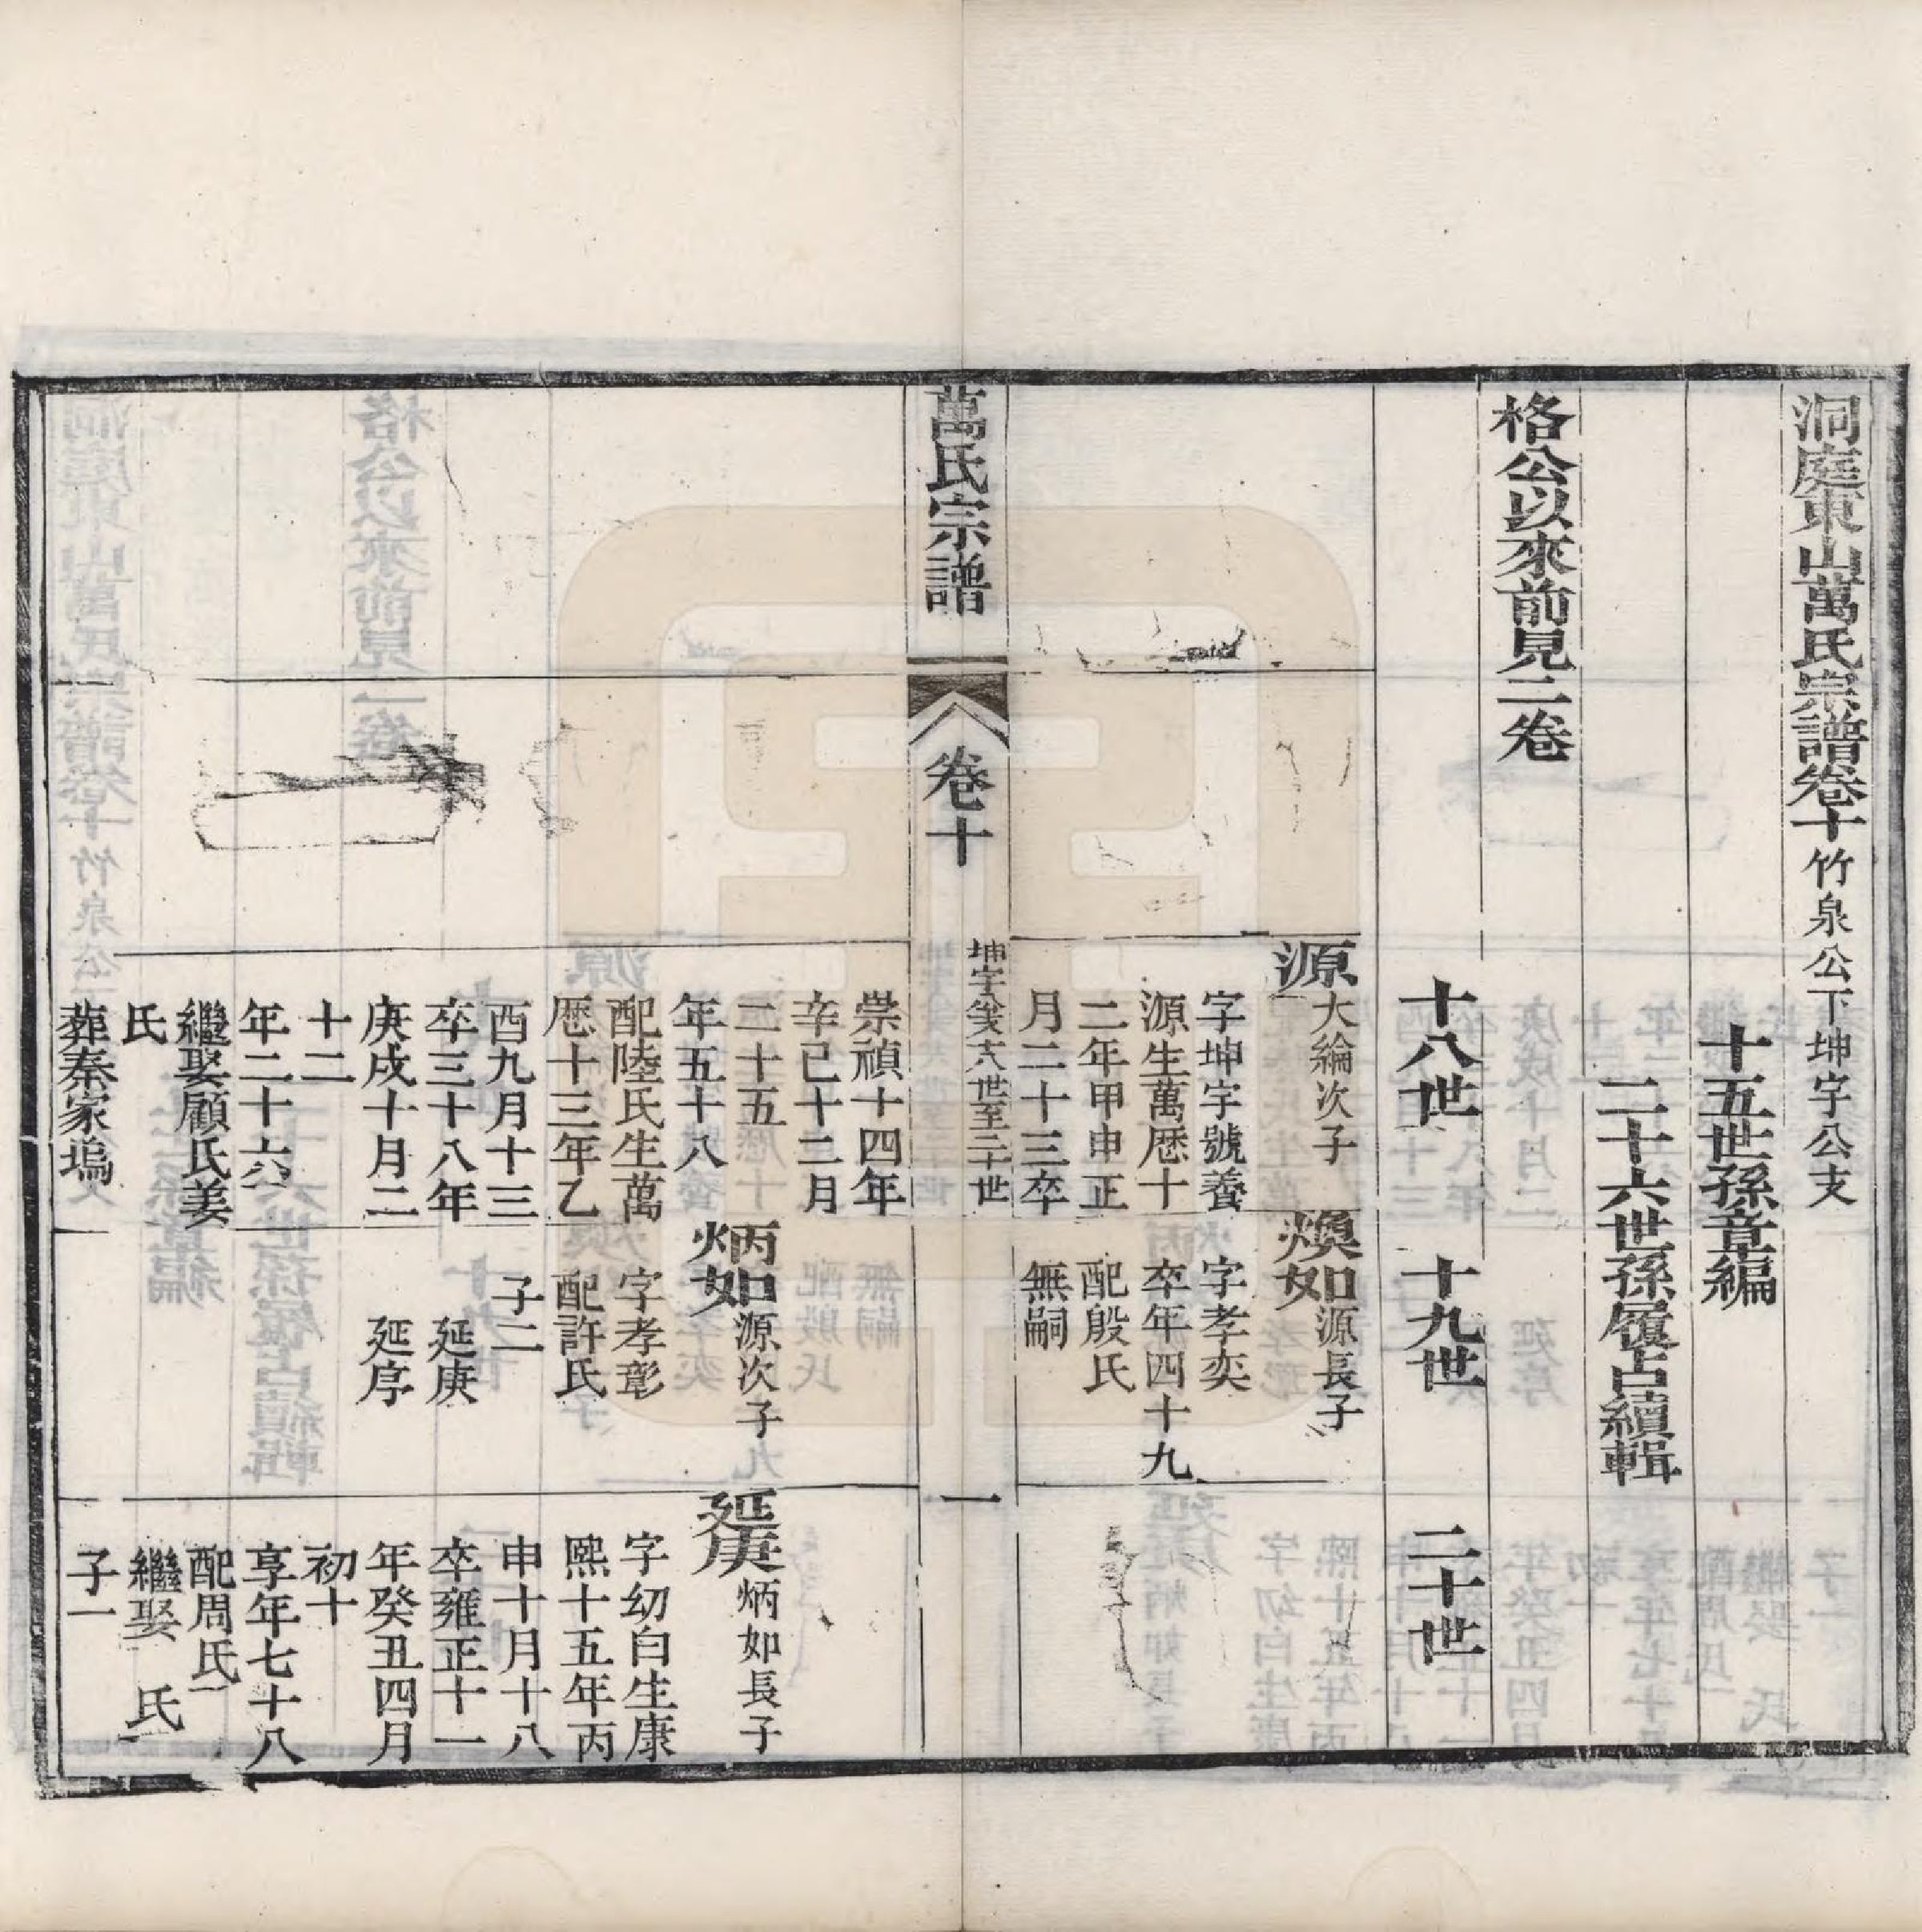 洞庭東山萬氏宗譜卷十竹泉公下坤字公支
十五世孫章編
二十六世孫履占續輯
格公以來前見二卷
十八世
十九世
二十世
源大綸次子
字坤宇號養
源生萬厯十
二年甲申正
月二十三卒
煥如源長子
字孝奕
卒年四十九
配殷氏
無嗣
萬氏宗譜
卷十
一
崇禎十四年
辛巳十二月
二十五
年五十八
配陸氏生萬
厯十三年乙
酉九月十三
卒三十八年
庚戌十月二
十二
年二十六
繼娶顧氏姜
氏
葬秦家塢
炳如源次子
字孝彰
配許氏
子二
延庚
延序
延庚炳如長子
字幼白生康
熙十五年丙
申十月十八
卒雍正十一
年癸丑四月
初十
享年七十八
配周氏
繼娶 氏
子一